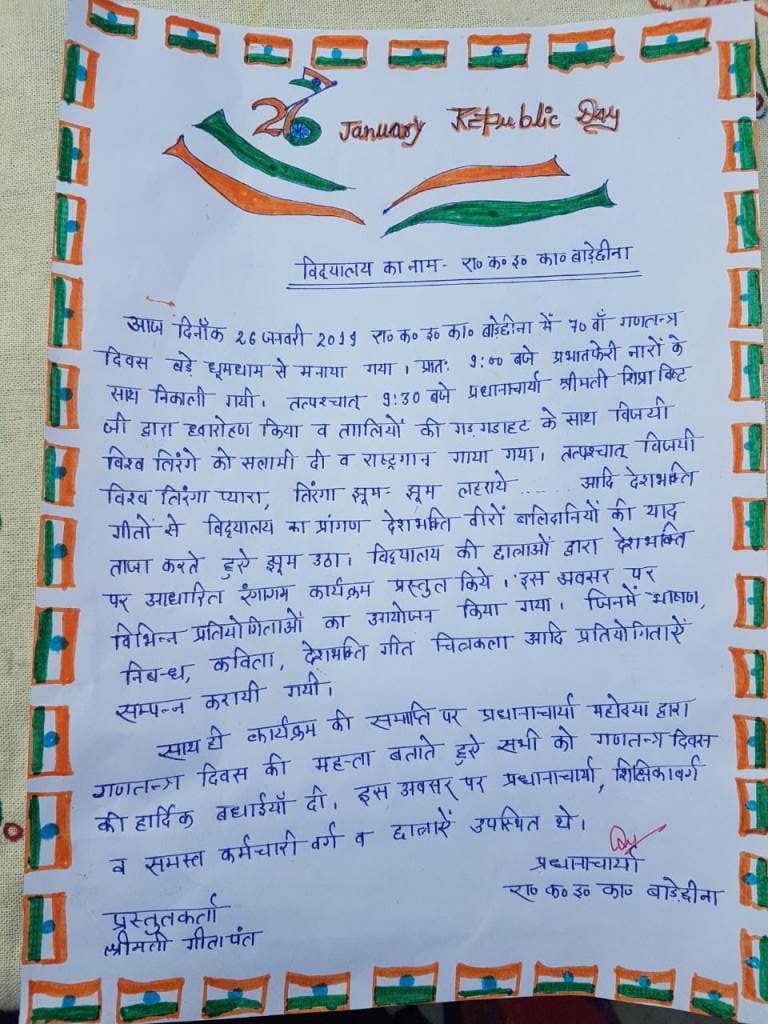 26 January Republic Day
विद्यालय का नाम- रा० क० इ० का० बाड़ेछीना
आज दिनाँक 26 जनवरी 2019 रा० क० इ० का० बाड़ेछीना में 70 वाँ गणतन्त्र
दिवस बड़े धूमधाम से मनाया गया। प्रातः 9:00 बजे प्रभातफेरी नारों के
साथ निकाली गयी। तत्पश्चात् 9:30 बजे प्रधानाचार्या श्रीमती शिप्रा बिष्ट
जी द्वारा ध्वारोहण किया व तालियों की गड़गडाहट के साथ विजयी
विश्व तिरंगे को सलामी दी व राष्ट्रगान गाया गया। तत्पश्चात् विजयी
विश्व तिरंगा प्यारा, तिरंगा झूम- झूम लहराये ..... आदि देशभक्ति
गीतों से विद्यालय का प्रांगण देशभक्ति वीरों बालिदानियों की याद
ताजा करते हुऐ झूम उठा। विद्यालय की छात्राओं द्वारा देशभक्ति
पर आधारित रंगारंग कार्यक्रम प्रस्तुत किये। इस अवसर पर
विभिन्न प्रतियोगिताओं का आयोजन किया गया। जिनमें भाषण,
निबन्ध, कविता, देशभक्ति गीत चित्रकला आदि प्रतियोगिताऐं
सम्पन्न करायी गयी।
साथ ही कार्यक्रम की समाप्ति पर प्रधानाचार्या महोदया द्वारा
गणतन्त्र दिवस की महत्ता बताते हुऐ सभी को गणतन्त्र दिवस
की हार्दिक बधाईयाँ दी। इस अवसर पर प्रधानाचार्या, शिक्षिकावर्ग
व समस्त कर्मचारी वर्ग व छात्राऐं उपस्थित थे।
प्रधानाचार्या
रा० क० इ० का० बाड़ेछीना
प्रस्तुतकर्ता
श्रीमती गीता पंत